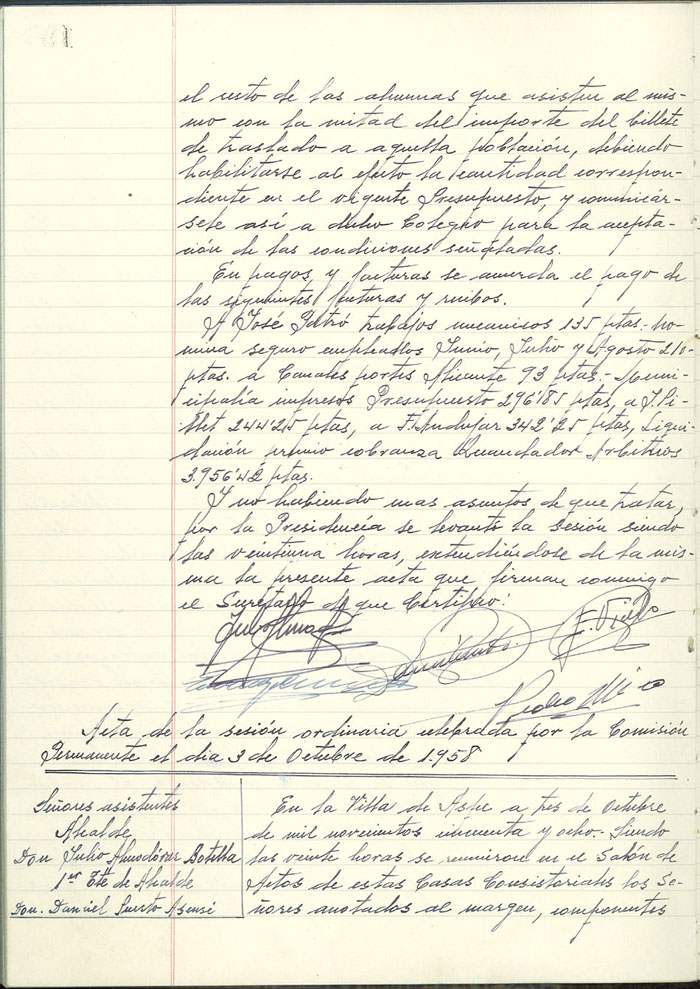 el resto de las alumnas que asisten al mis-
mo con la mitad del importe del billete
de traslado a aquella población, debiendo
habilitarse al efecto la cantidad correspon-
diente en el vigente Presupuesto, y comunicár-
sele así a dicho Colegio para la acepta-
ción de las condiciones señaladas.
En pagos, y facturas se acuerda el pago de
las siguientes facturas y recibos.
A José Patró trabajos mecanicos 135 ptas.- No-
mina seguro empleados Junio, Julio y Agosto 210-
ptas. a Canales portes Alicante 93 ptas.- Muni-
cipalía impresos Presupuesto 296'85 ptas, a J. Pi-
llet 244'25 ptas, a F. Andujar 342'25 ptas, Liqui-
dación premio cobranza Recaudador Arbitrios
3.956'42 ptas.
Y no habiendo mas asuntos de que tratar,
por la Presidencia se levantó la sesión siendo
las veintiuna horas, extendiéndose de la mis-
ma la presente acta que firman conmigo
el Secretario de que Certifico:
Pedro Mico
Acta de la sesión ordinaria celebrada por la Comisión
Permanente el dia 3 de Octubre de 1.958
Señores asistentes
Alcalde
Don Julio Almodóvar Botella
1er Tte de Alcalde
Don. Daniel Puerto Asensi
En la Villa de Aspe a tres de Octubre
de mil novecientos cincuenta y ocho. Siendo
las veinte horas se reunieron en el Salón de
Actos de estas Casas Consistoriales los Se-
ñores anotados al margen, componentes